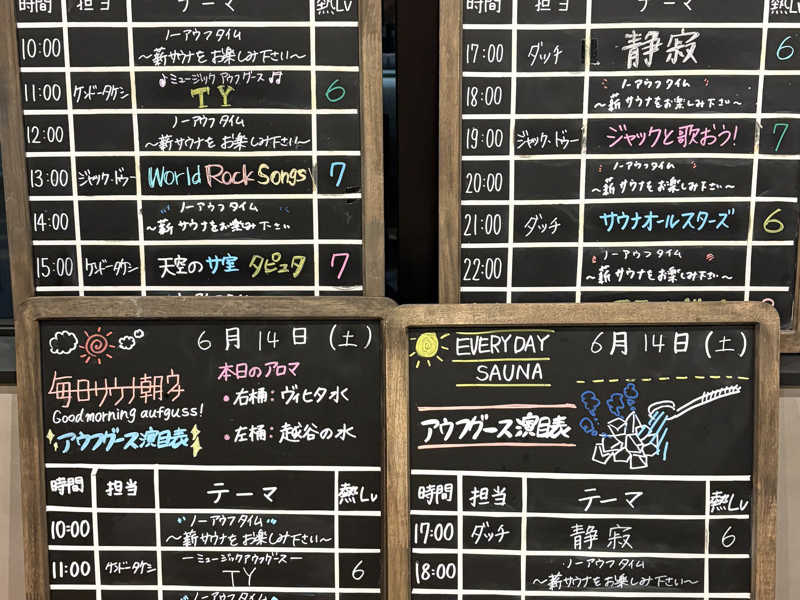 時間 担当 テーマ 熱Lv
10:00 ノーアウフタイム
～薪サウナをお楽しみ下さい～
11:00 ケンドータケシ ♪ミュージック アウフグース♫
TY 6
12:00 ノーアウフタイム
～薪サウナをお楽しみ下さい～
13:00 ジャック・ドゥー World Rock Songs 7
14:00 ノーアウフタイム
～薪サウナをお楽しみ下さい～
15:00 ケンドータケシ 天空のサ室 タピュタ 7
時間 担当 テーマ 熱Lv
17:00 ダッチ 静寂 6
18:00 ノーアウフタイム
～薪サウナをお楽しみ下さい～
19:00 ジャック・ドゥー ジャックと歌おう! 7
20:00 ノーアウフタイム
～薪サウナをお楽しみ下さい～
21:00 ダッチ サウナオールスターズ 6
22:00 ノーアウフタイム
～薪サウナをお楽しみ下さい～
6月14日(土)
毎日サウナ朝ウナ
Good morning aufguss!
アウフグース演目表
本日のアロマ
・右桶:ヴィヒタ水
・左桶:越谷の水
時間 担当 テーマ 熱Lv
10:00 ノーアウフタイム
～薪サウナをお楽しみ下さい～
11:00 ケンドータケシ ーミュージックアウフグースー
TY 6
ノーアウフタイム
EVERYDAY
SAUNA
6月14日(土)
アウフグース演目表
時間 担当 テーマ 熱Lv
17:00 ダッチ 静寂 6
18:00 ノーアウフタイム
～薪サウナをお楽しみ下さい～